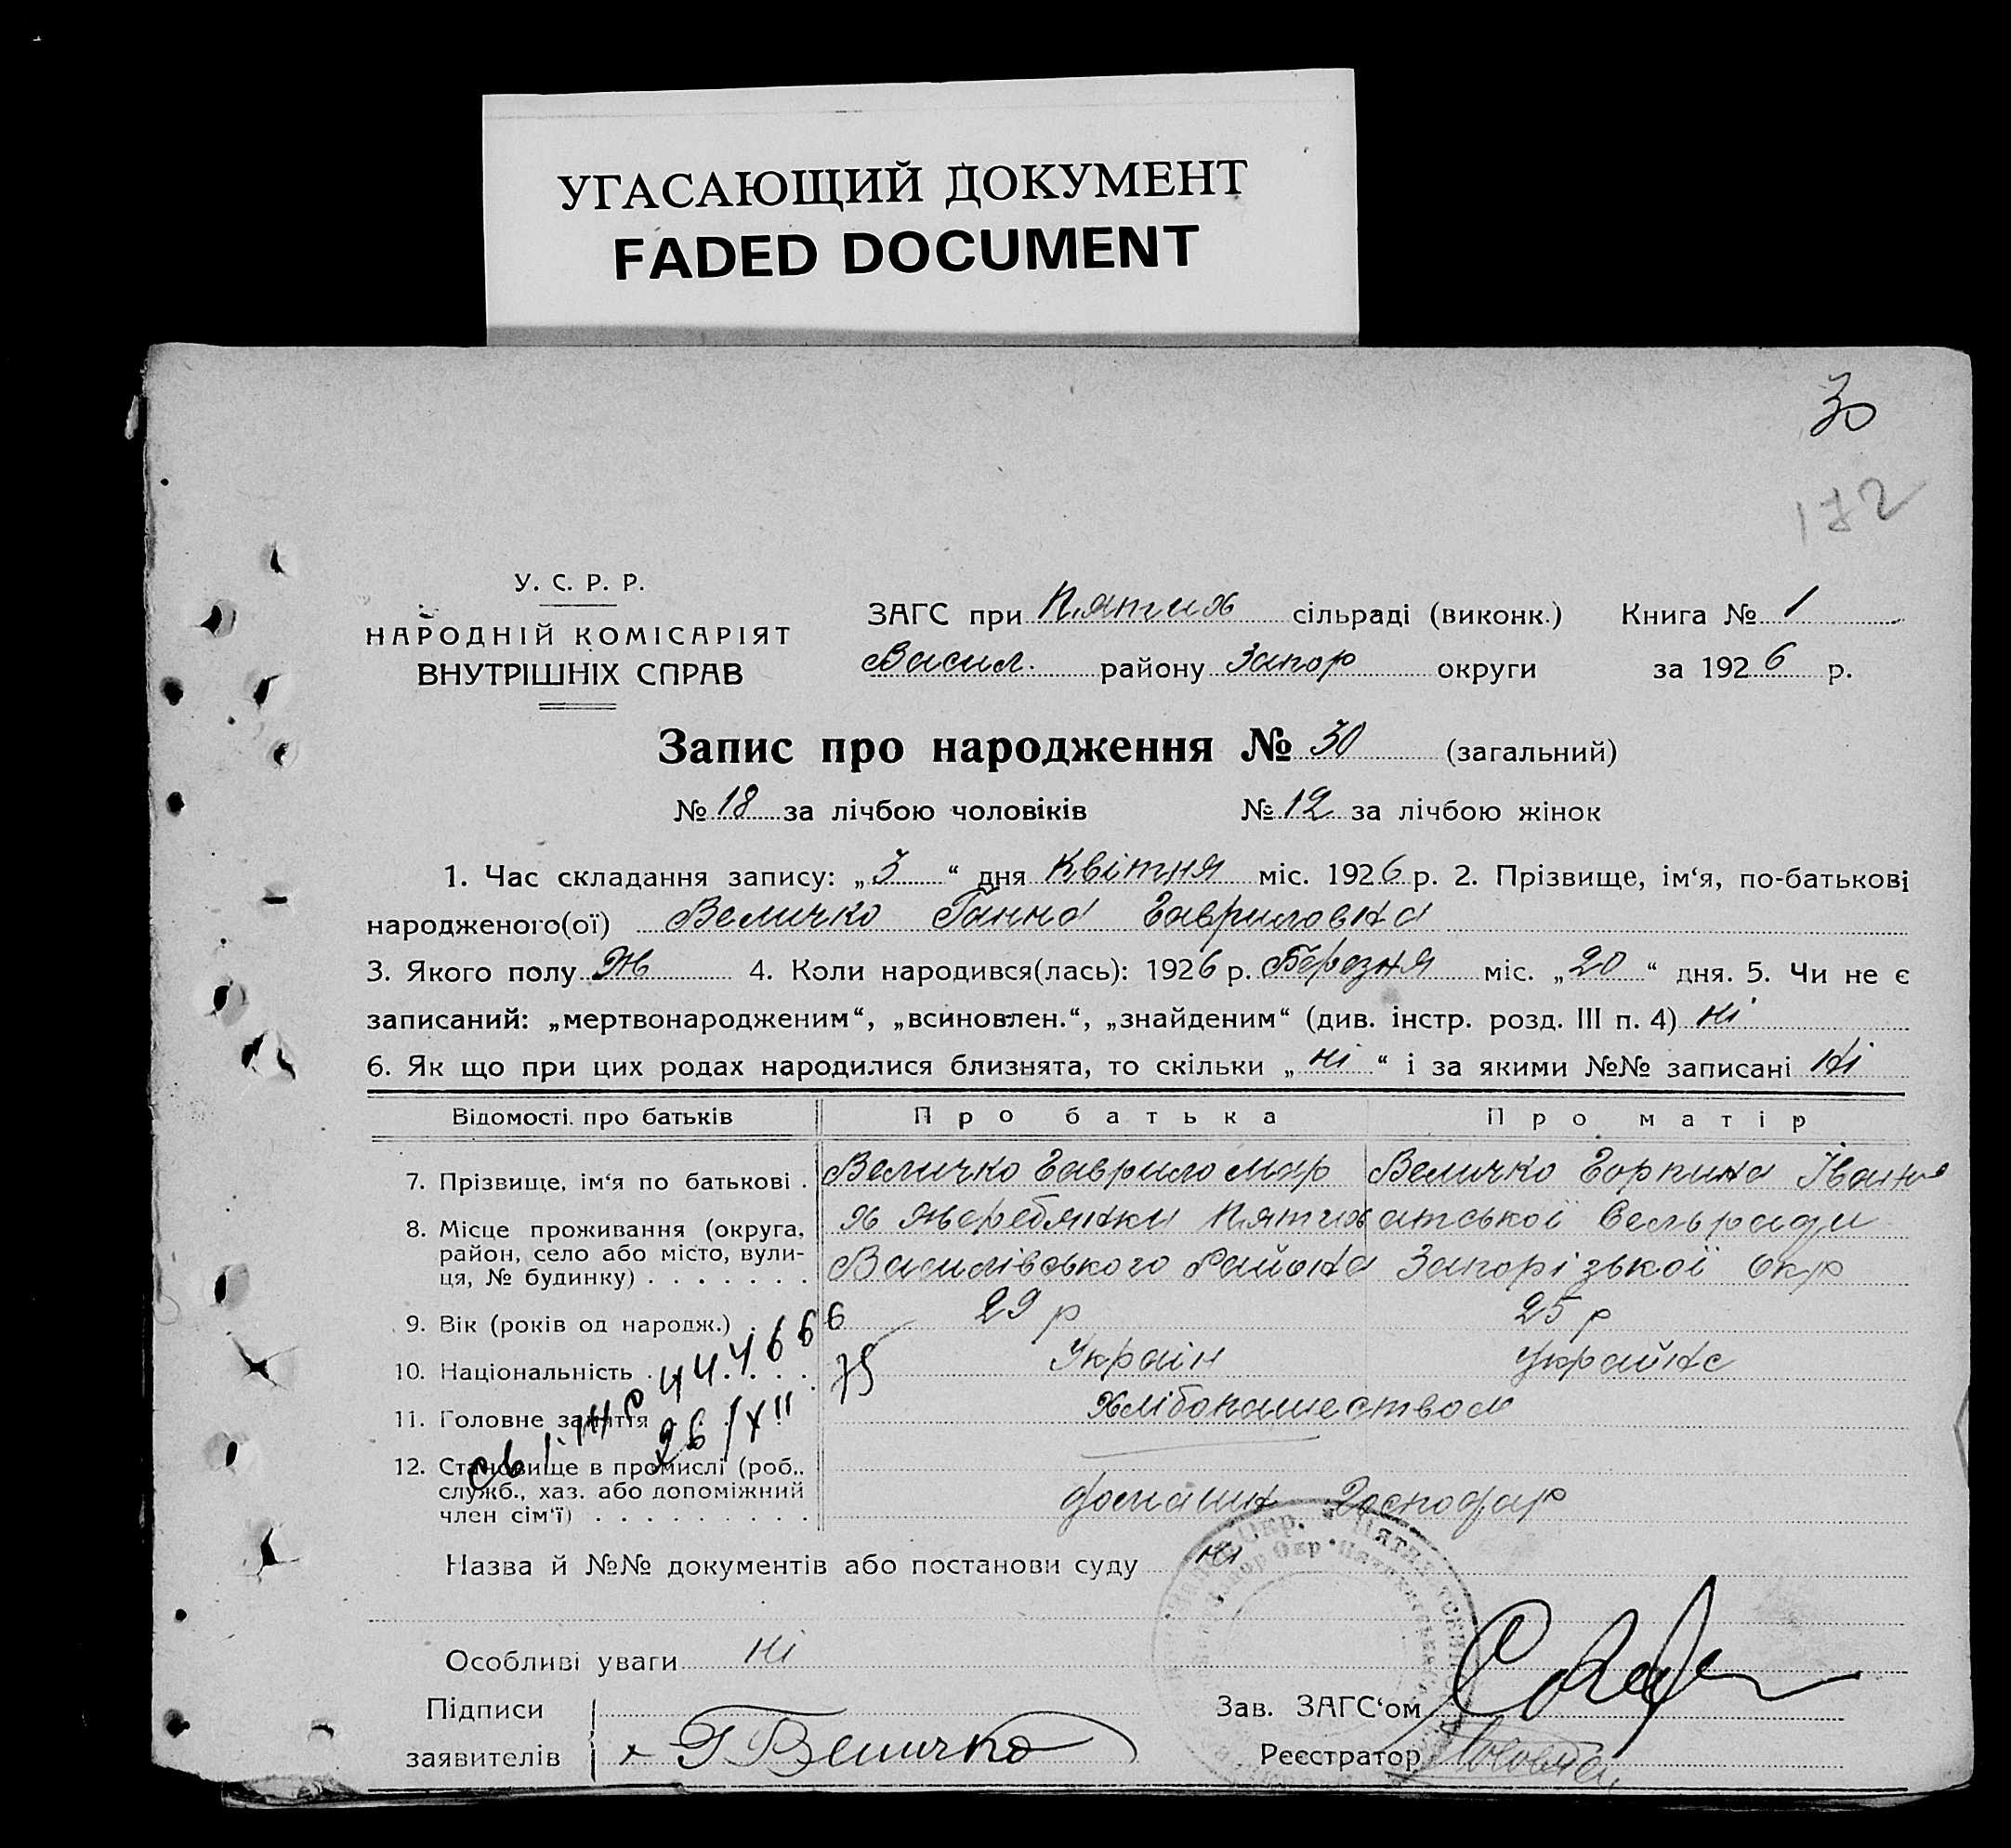 УГАСАЮЩИЙ ДОКУМЕНТ
FADED DOCUMENT
30
172
У. С. Р. Р.
НАРОДНІЙ КОМІСАРІЯТ
ВНУТРІШНІХ СПРАВ
ЗАГС при Пятих сільраді (виконк.) Книга № 1
Васил. району Запор округи за 1926 р.
Запис про народження № 30 (загальний)
№ 18 за лічбою чоловіків № 12 за лічбою жінок
1. Час складання запису: „3“ дня Квітня міс. 1926 р. 2. Прізвище, ім‘я, по-батькові
народженого(ої) Величко Ганна Гавриловна
3. Якого полу Ж 4. Коли народився(лась): 1926 р. Березня міс. „20“ дня. 5. Чи не є
записаний: „мертвонародженим“, „всиновлен.“, „знайденим“ (див. інстр. розд. III п. 4) ні
6. Як що при цих родах народилися близнята, то скільки „ні“ і за якими №№ записані ні
Відомості про батьків Про батька Про матір
7. Прізвище, ім‘я по батькові . Величко Гаврило Мар Величко Горпина Івано
8. Місце проживання (округа, х Жеребянки Пятихатської Сельради
район, село або місто, вули-
ця, № будинку) . . . . . . . Василівського Района Запорізької Окр
9. Вік (років од народж.) . 29 р 25 р
10. Національність . . . . . Україн Україйка
11. Головне заняття Хлібопашеством
12. Становище в промислі (роб.,
служб., хаз. або допоміжний
член сім‘ї) . . . . . . . . . домашн господар
444666
26/XII
75
Назва й №№ документів або постанови суду ні
Особливі уваги ні
Підписи
заявителів х Г Величко
Зав. ЗАГС‘ом
Реєстратор